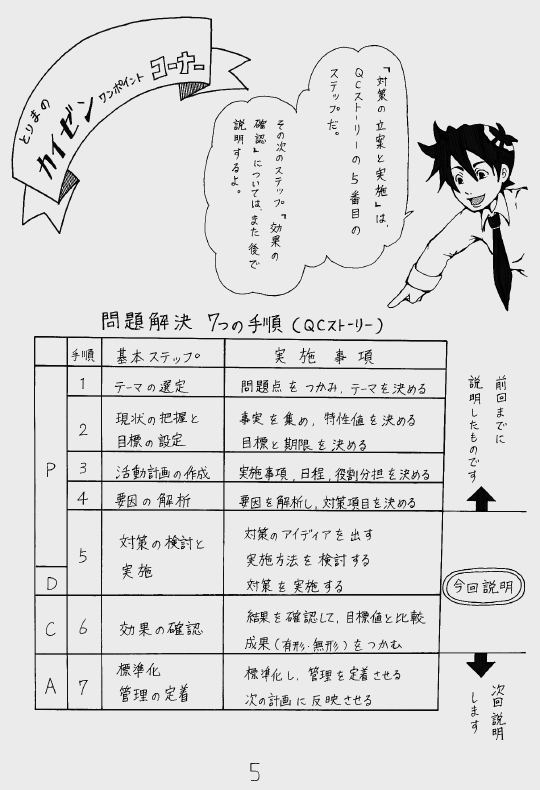 とりまの
カイゼン
ワンポイント
コーナー
『対策の立案と実施』は、
QCストーリーの5番目の
ステップだ。
その次のステップ『効果の
確認』については、また後で
説明するよ。
問題解決 7つの手順(QCストーリー)
手順 基本ステップ 実施事項
P
1 テーマの選定 問題点をつかみ,テーマを決める
2 現状の把握と 事実を集め,特性値を決める
目標の設定 目標と期限を決める
3 活動計画の作成 実施事項,日程,役割分担を決める
4 要因の解析 要因を解析し,対策項目を決める
5 対策の検討と 対策のアイディアを出す
実施 実施方法を検討する
D 対策を実施する
C 6 効果の確認 結果を確認して,目標値と比較
成果(有形・無形)をつかむ
A 7 標準化 標準化し,管理を定着させる
管理の定着 次の計画に反映させる
前回までに
説明したものです
今回説明
次回説明
します
5